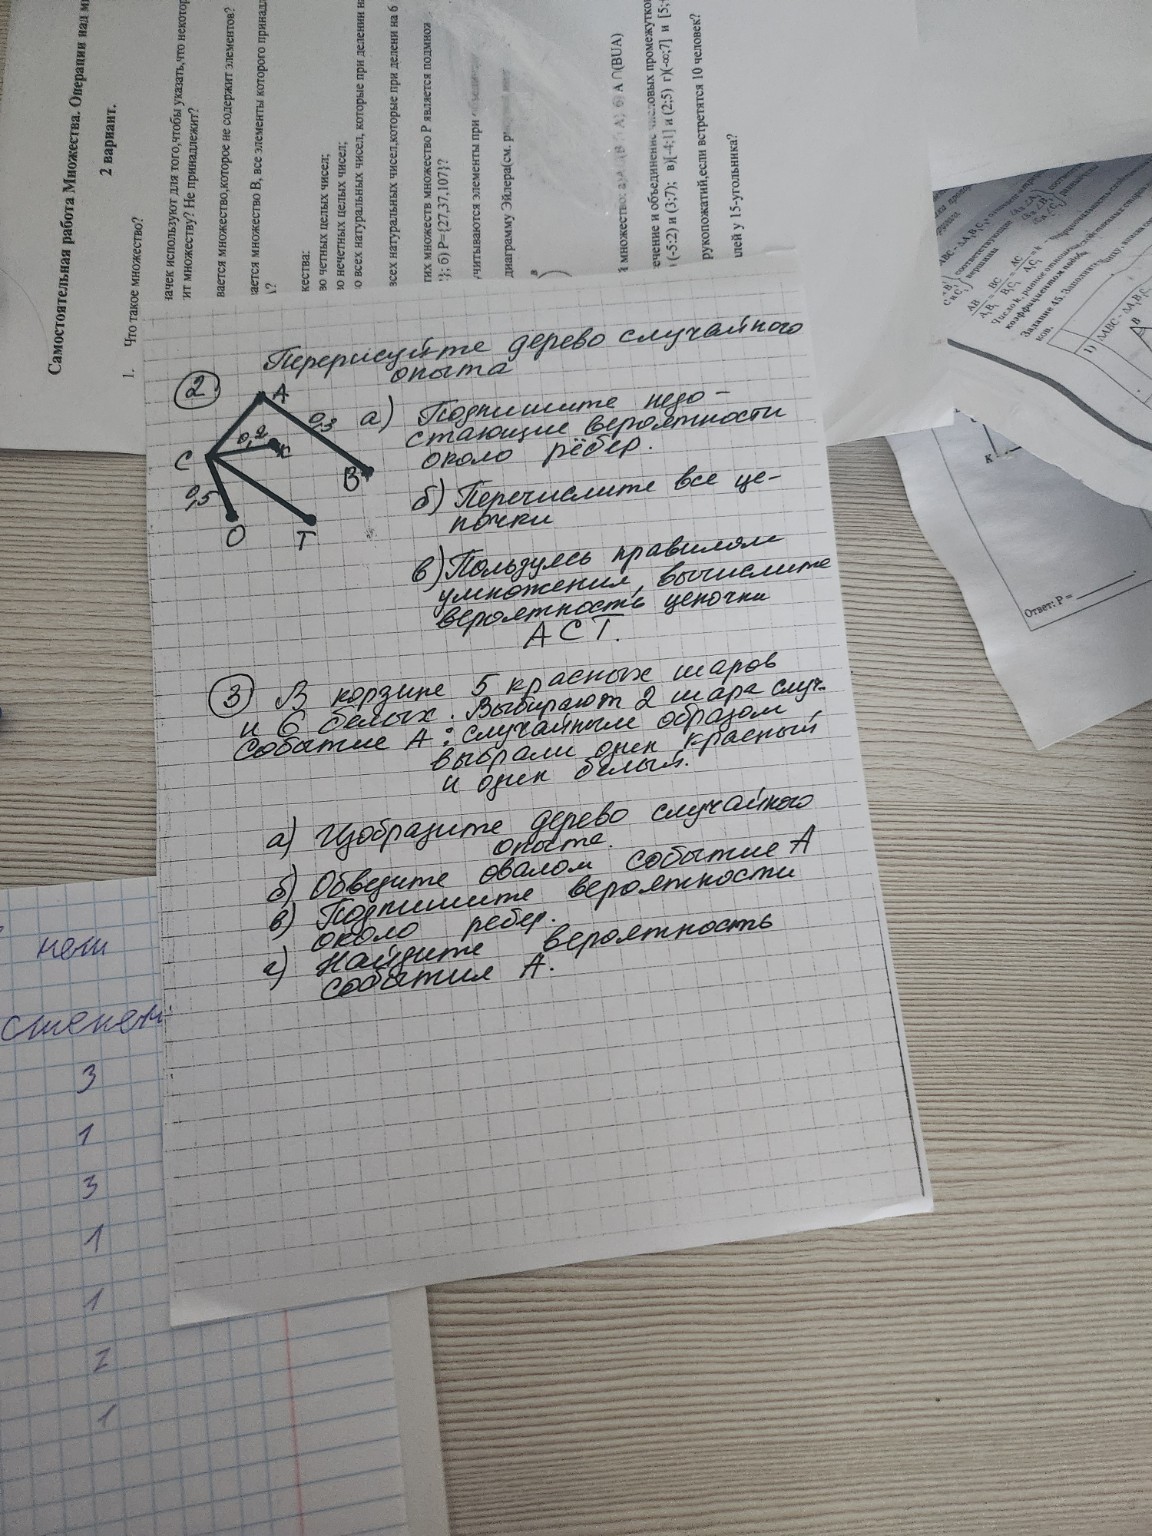 Перерисуйте дерево случайного
опыта
2
A
0,3
0,2
C
K
B
0,5
O
T
а) Подпишите недо-
стающие вероятности
около рёбер.
б) Перечислите все це-
почки
в) Пользуясь правилом
умножения, вычислите
вероятность цепочки
А С Т.
3 В корзине 5 красных шаров
и 6 белых. Выбирают 2 шара случ.
Событие А: случайным образом
выбрали один красный
и один белый.
а) Изобразите дерево случайного
опыта.
б) Обведите овалом событие А
в) Подпишите вероятности
около ребер.
г) Найдите вероятность
события А.
нет
степен
3
1
3
1
1
2
1
Самостоятельная работа Множества. Операции над м
2 вариант.
1. Что такое множество?
ачек используют для того,чтобы указать,что некотор
ит множеству? Не принадлежит?
вается множество,которое не содержит элементов?
ается множество В, все элементы которого принад
жества:
о четных целых чисел;
о нечетных целых чисел;
о всех натуральных чисел, которые при делении н
всех натуральных чисел,которые при делени на 6
гих множеств множество Р является подмнож
; б) Р={27,37,107}?
читываются элементы при
диаграмму Эйлера(см.
множество: А∩(BUA)
ечение и объединение числовых промежутков
(-5:2) и (3;7); в)[-4;1] и (2;5) г)(-∞;7] и [5;
рукопожатий,если встретятся 10 человек?
лей у 15-угольника?
Задание 45.
Ответ: Р =
К